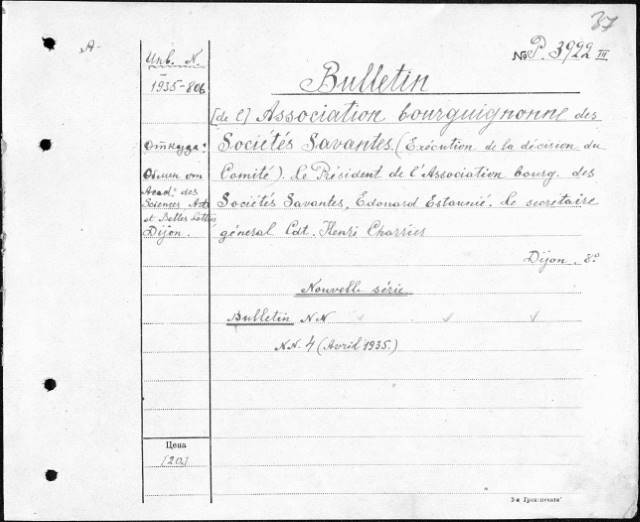 37
A
Инв. N.
1935-806
№ P. 3922 III
Bulletin
[de l'] Association bourguignonne des
Откуда: Sociétés Savantes. (Exécution de la décision du
Обмен от Comité). Le Président de l'Association bourg. des
Acad. des
Sciences Arts Sociétés Savantes, Edouard Estaunié. Le secrétaire
et Belles Lettres
Dijon. général Cdt. Henri Charrier
Dijon. 8°
Nouvell. série
Bulletin NN
NN. 4 (Avril 1935.)
Цена
[20]